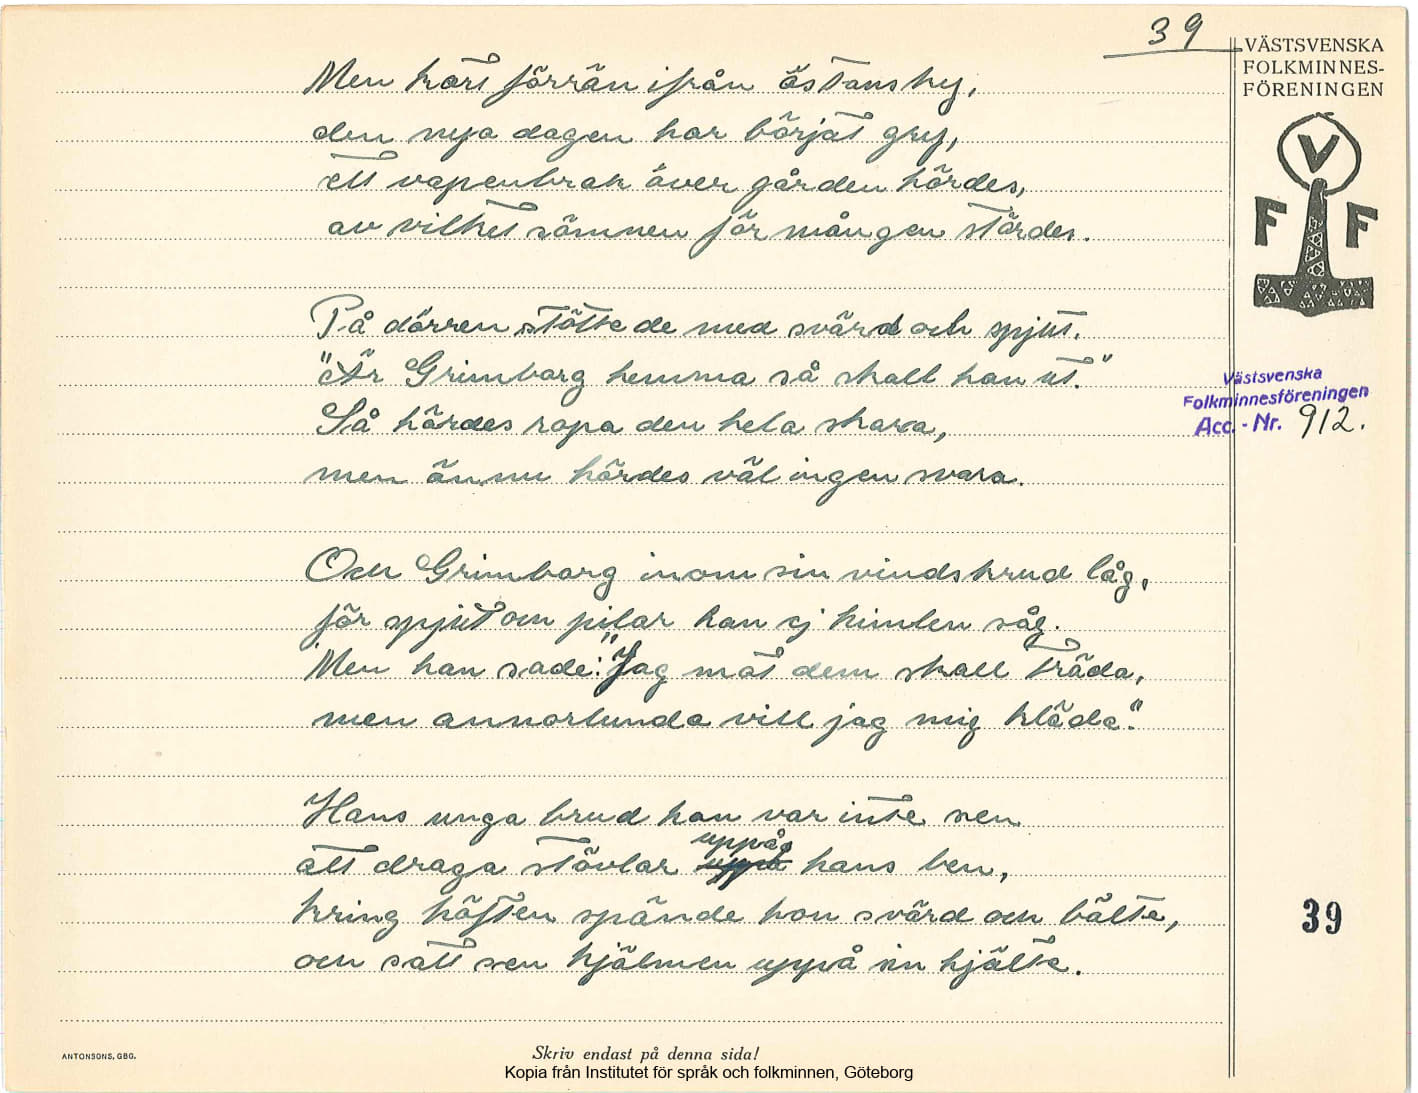 39
VÄSTSVENSKA
FOLKMINNES-
FÖRENINGEN
V
F F
Men kort förrän ifrån östansky,
den nya dagen har börjat gry,
ett vapenbrak över gården hördes,
av vilket sömnen för mången stördes.
På dörren stötte de med svärd och spjut.
"Är Grimborg hemma så skall han ut."
Västsvenska
Folkminnesföreningen
Acc.-Nr. 912.
Så hördes ropa den hela skara,
men ännu hördes väl ingen svara.
Och Grimborg inom sin vindskrud låg,
för spjut om pilar han ej himlen såg.
Men han sade: "Jag mot dem skall träda,
men annorlunda vill jag mig kläda."
Hans unga brud hon var inte sen
att draga stövlar uppå hans ben,
kring höften spände hon svärd och bälte,
och satt sen hjälmen uppå sin hjälte.
39
ANTONSONS, GBG.
Skriv endast på denna sida!
Kopia från Institutet för språk och folkminnen, Göteborg